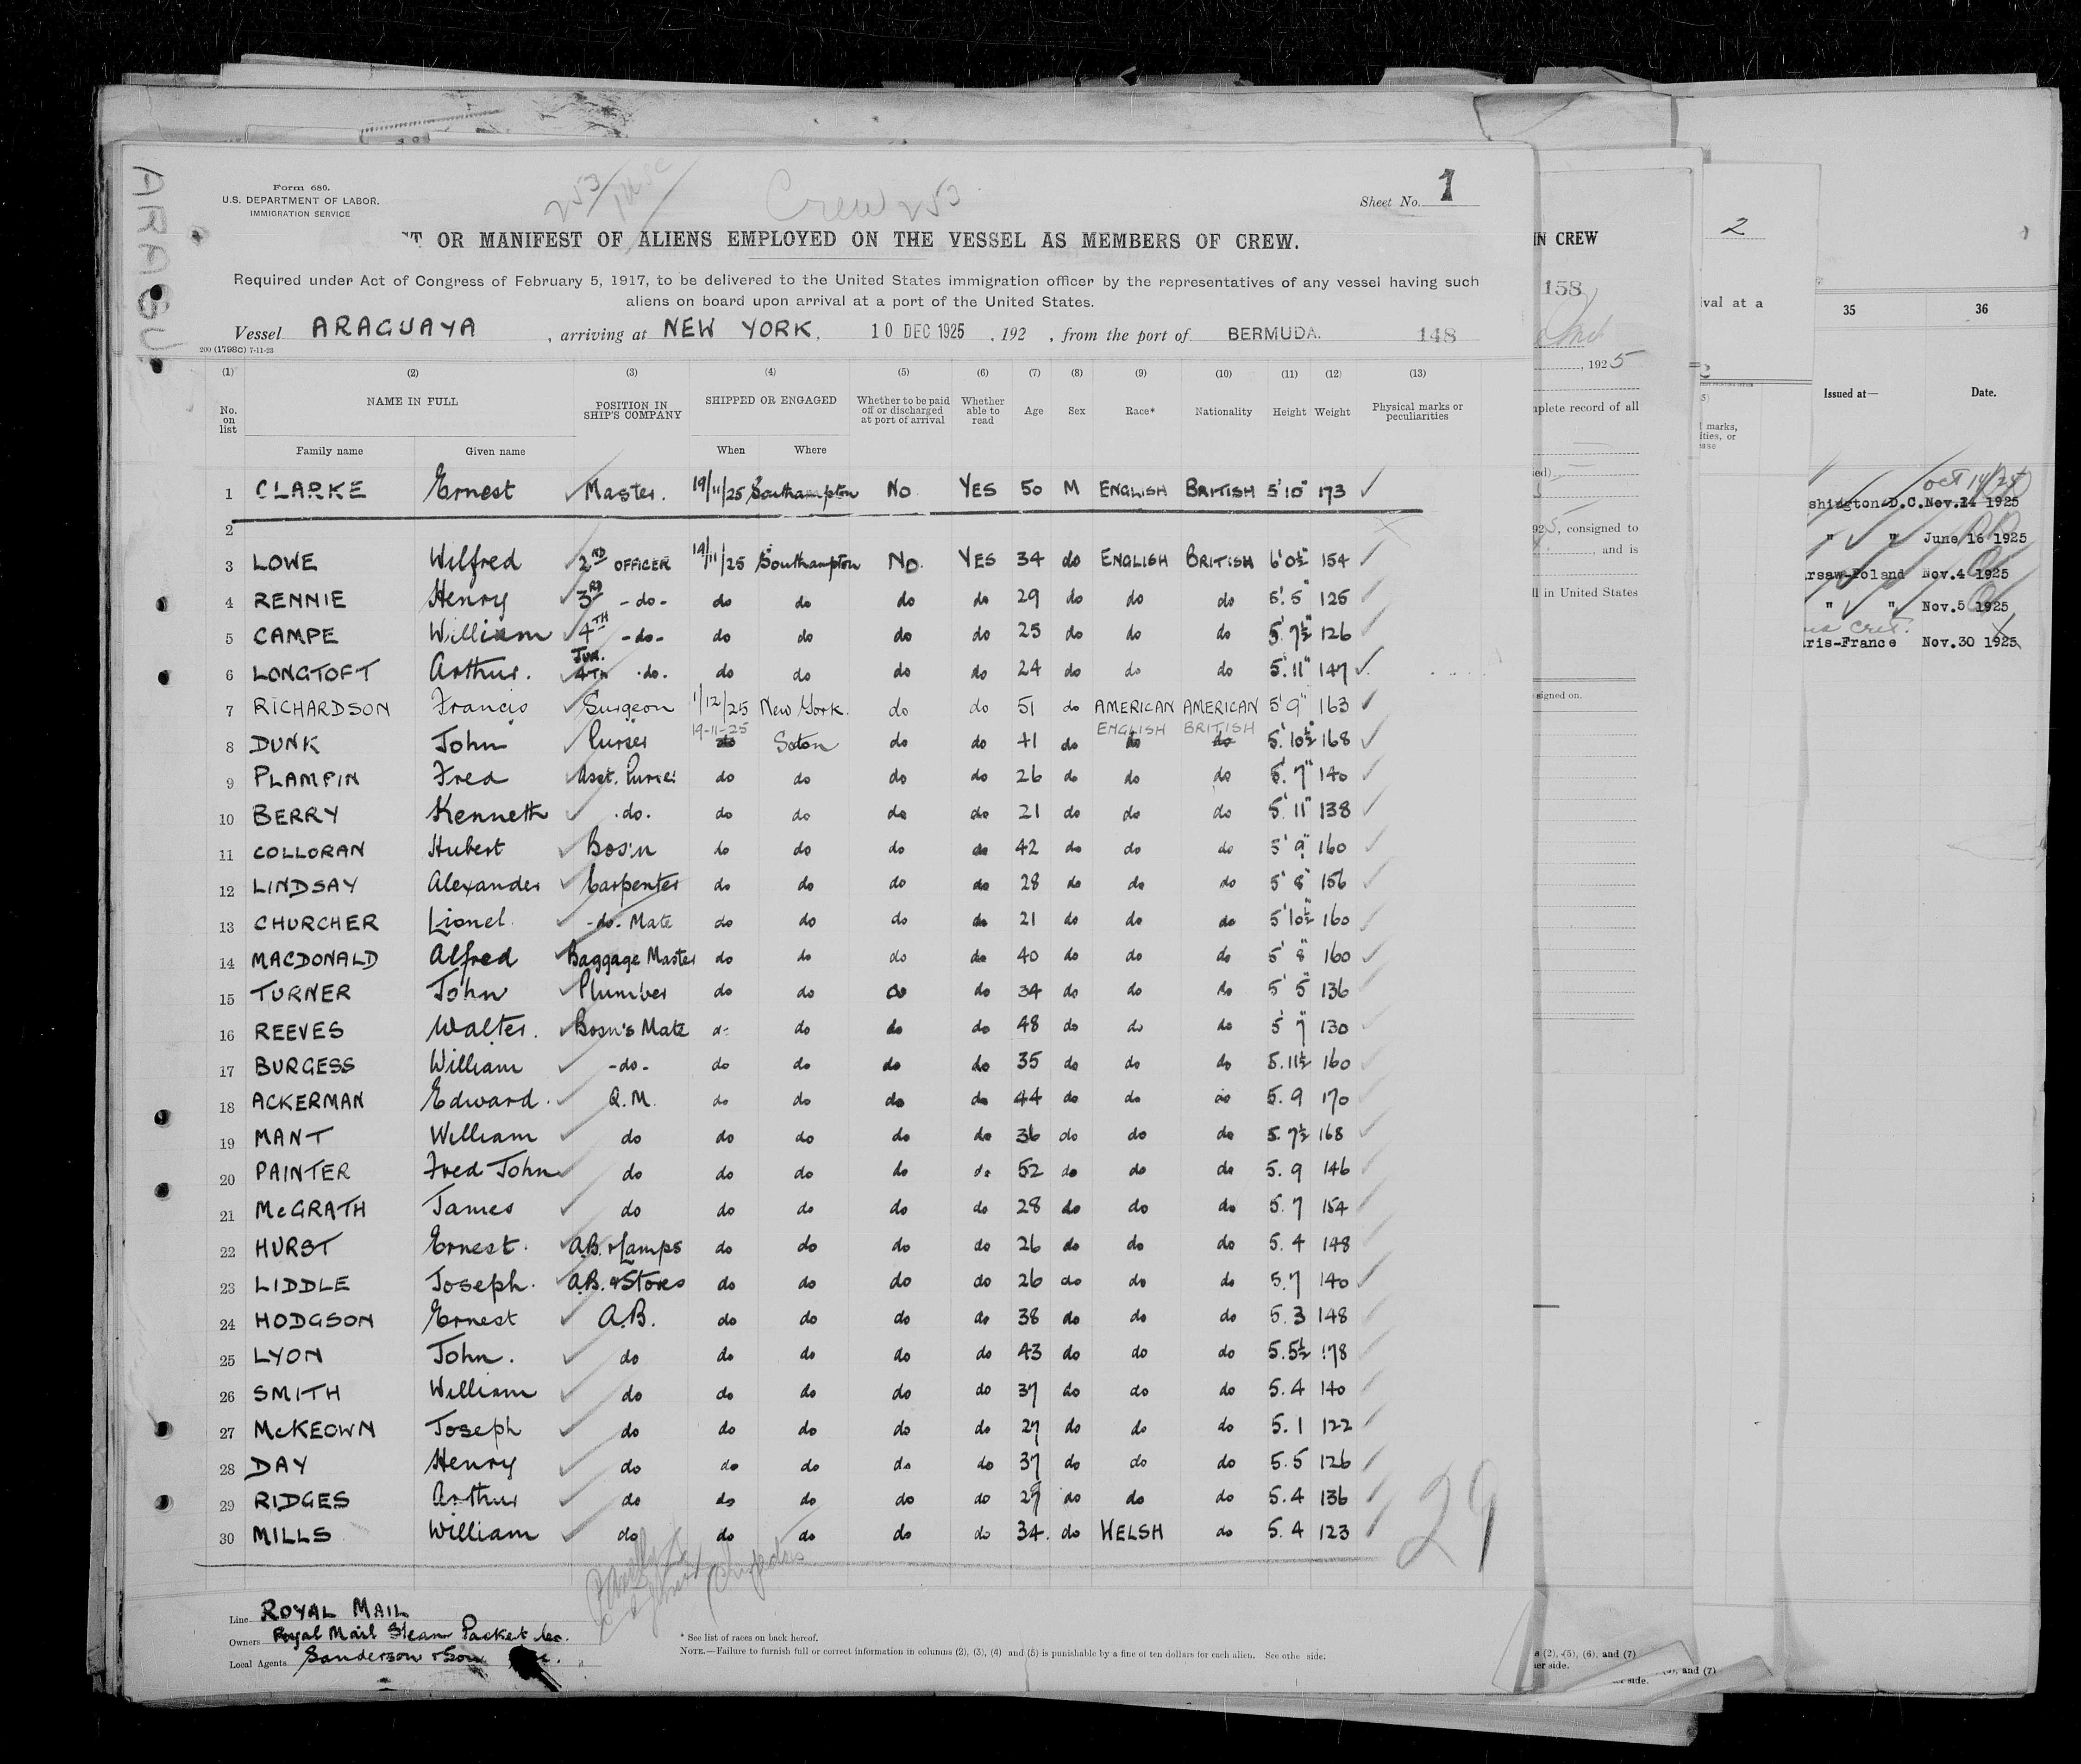 ARAGU
Form 680.
U.S. DEPARTMENT OF LABOR,
IMMIGRATION SERVICE
253
Crew 253
Sheet No. 1
T OR MANIFEST OF ALIENS EMPLOYED ON THE VESSEL AS MEMBERS OF CREW.
Required under Act of Congress of February 5, 1917, to be delivered to the United States immigration officer by the representatives of any vessel having such
aliens on board upon arrival at a port of the United States.
Vessel ARAGUAYA, arriving at NEW YORK, 10 DEC 1925, 192 , from the port of BERMUDA. 148
200 (1798c) 7-11-23
(1) (2) (3) (4) (5) (6) (7) (8) (9) (10) (11) (12) (13)
No. on list NAME IN FULL POSITION IN SHIP'S COMPANY SHIPPED OR ENGAGED Whether to be paid off or discharged at port of arrival Whether able to read Age Sex Race* Nationality Height Weight Physical marks or peculiarities
Family name Given name When Where
1 CLARKE Ernest Master. 19/11/25 Southampton No YES 50 M ENGLISH BRITISH 5'10" 173 ✓
2
3 LOWE Wilfred 2ND OFFICER 19/11/25 Southampton No. YES 34 do ENGLISH BRITISH 6'0½" 154 ✓
4 RENNIE Henry 3RD -do- do do do do 29 do do do 5'.5" 125 ✓
5 CAMPE William 4TH -do- do do do do 25 do do do 5'.7½" 126 ✓
6 LONGTOFT Arthur. Jun. 4TH .do. do do do do 24 do do do 5'.11" 147 ✓
7 RICHARDSON Francis Surgeon 1/12/25 New York. do do 51 do AMERICAN AMERICAN 5'9" 163 ✓
19-11-25 ENGLISH BRITISH
8 DUNK John Purser do Soton do do 41 do do do 5'.10½" 168 ✓
9 PLAMPIN Fred Asst. Purser do do do do 26 do do do 5'.7" 140 ✓
10 BERRY Kenneth .do. do do do do 21 do do do 5'11" 138 ✓
11 COLLORAN Hubert Bos'n do do do do 42 do do do 5'9" 160 ✓
12 LINDSAY Alexander Carpenter do do do do 28 do do do 5'8" 156 ✓
13 CHURCHER Lionel. -do- Mate do do do do 21 do do do 5'10½" 160 ✓
14 MACDONALD Alfred Baggage Master do do do do 40 do do do 5'8" 160 ✓
15 TURNER John Plumber do do do do 34 do do do 5'5" 136 ✓
16 REEVES Walter. Bosn's Mate do do do do 48 do do do 5'7" 130 ✓
17 BURGESS William -do- do do do do 35 do do do 5.11½ 160 ✓
18 ACKERMAN Edward. Q.M. do do do do 44 do do do 5.9 170 ✓
19 MANT William do do do do do 36 do do do 5.7½ 168 ✓
20 PAINTER Fred John do do do do do 52 do do do 5.9 146 ✓
21 McGRATH James do do do do do 28 do do do 5.7 154 ✓
22 HURST Ernest. A.B. & Lamps do do do do 26 do do do 5.4 148 ✓
23 LIDDLE Joseph. A.B. & Stores do do do do 26 do do do 5.7 140 ✓
24 HODGSON Ernest A.B. do do do do 38 do do do 5.3 148 ✓
25 LYON John. do do do do do 43 do do do 5.5½ 178 ✓
26 SMITH William do do do do do 37 do do do 5.4 140 ✓
27 McKEOWN Joseph do do do do do 27 do do do 5.1 122 ✓
28 DAY Henry do do do do do 37 do do do 5.5 126 ✓
29 RIDGES Arthur do do do do do 27 do do do 5.4 136 ✓
30 MILLS William do do do do do 34. do WELSH do 5.4 123 ✓
29
Line ROYAL MAIL
Owners Royal Mail Steam Packet Co.
Local Agents Sanderson & Son
* See list of races on back hereof.
NOTE.—Failure to furnish full or correct information in columns (2), (3), (4) and (5) is punishable by a fine of ten dollars for each alien. See othe side.
IN CREW
158
, 1925
plete record of all
5, consigned to
, and is
in United States
signed on.
s (2), (5), (6), and (7)
er side.
2
val at a
marks,
ities, or
ase
and (7)
side.
35 36
Issued at— Date.
Oct 14/24
shington-D.C. Nov.24 1925
" " June 16 1925
rsaw-Poland Nov.4 1925
" " Nov.5 1925
ris-France Nov.30 1925